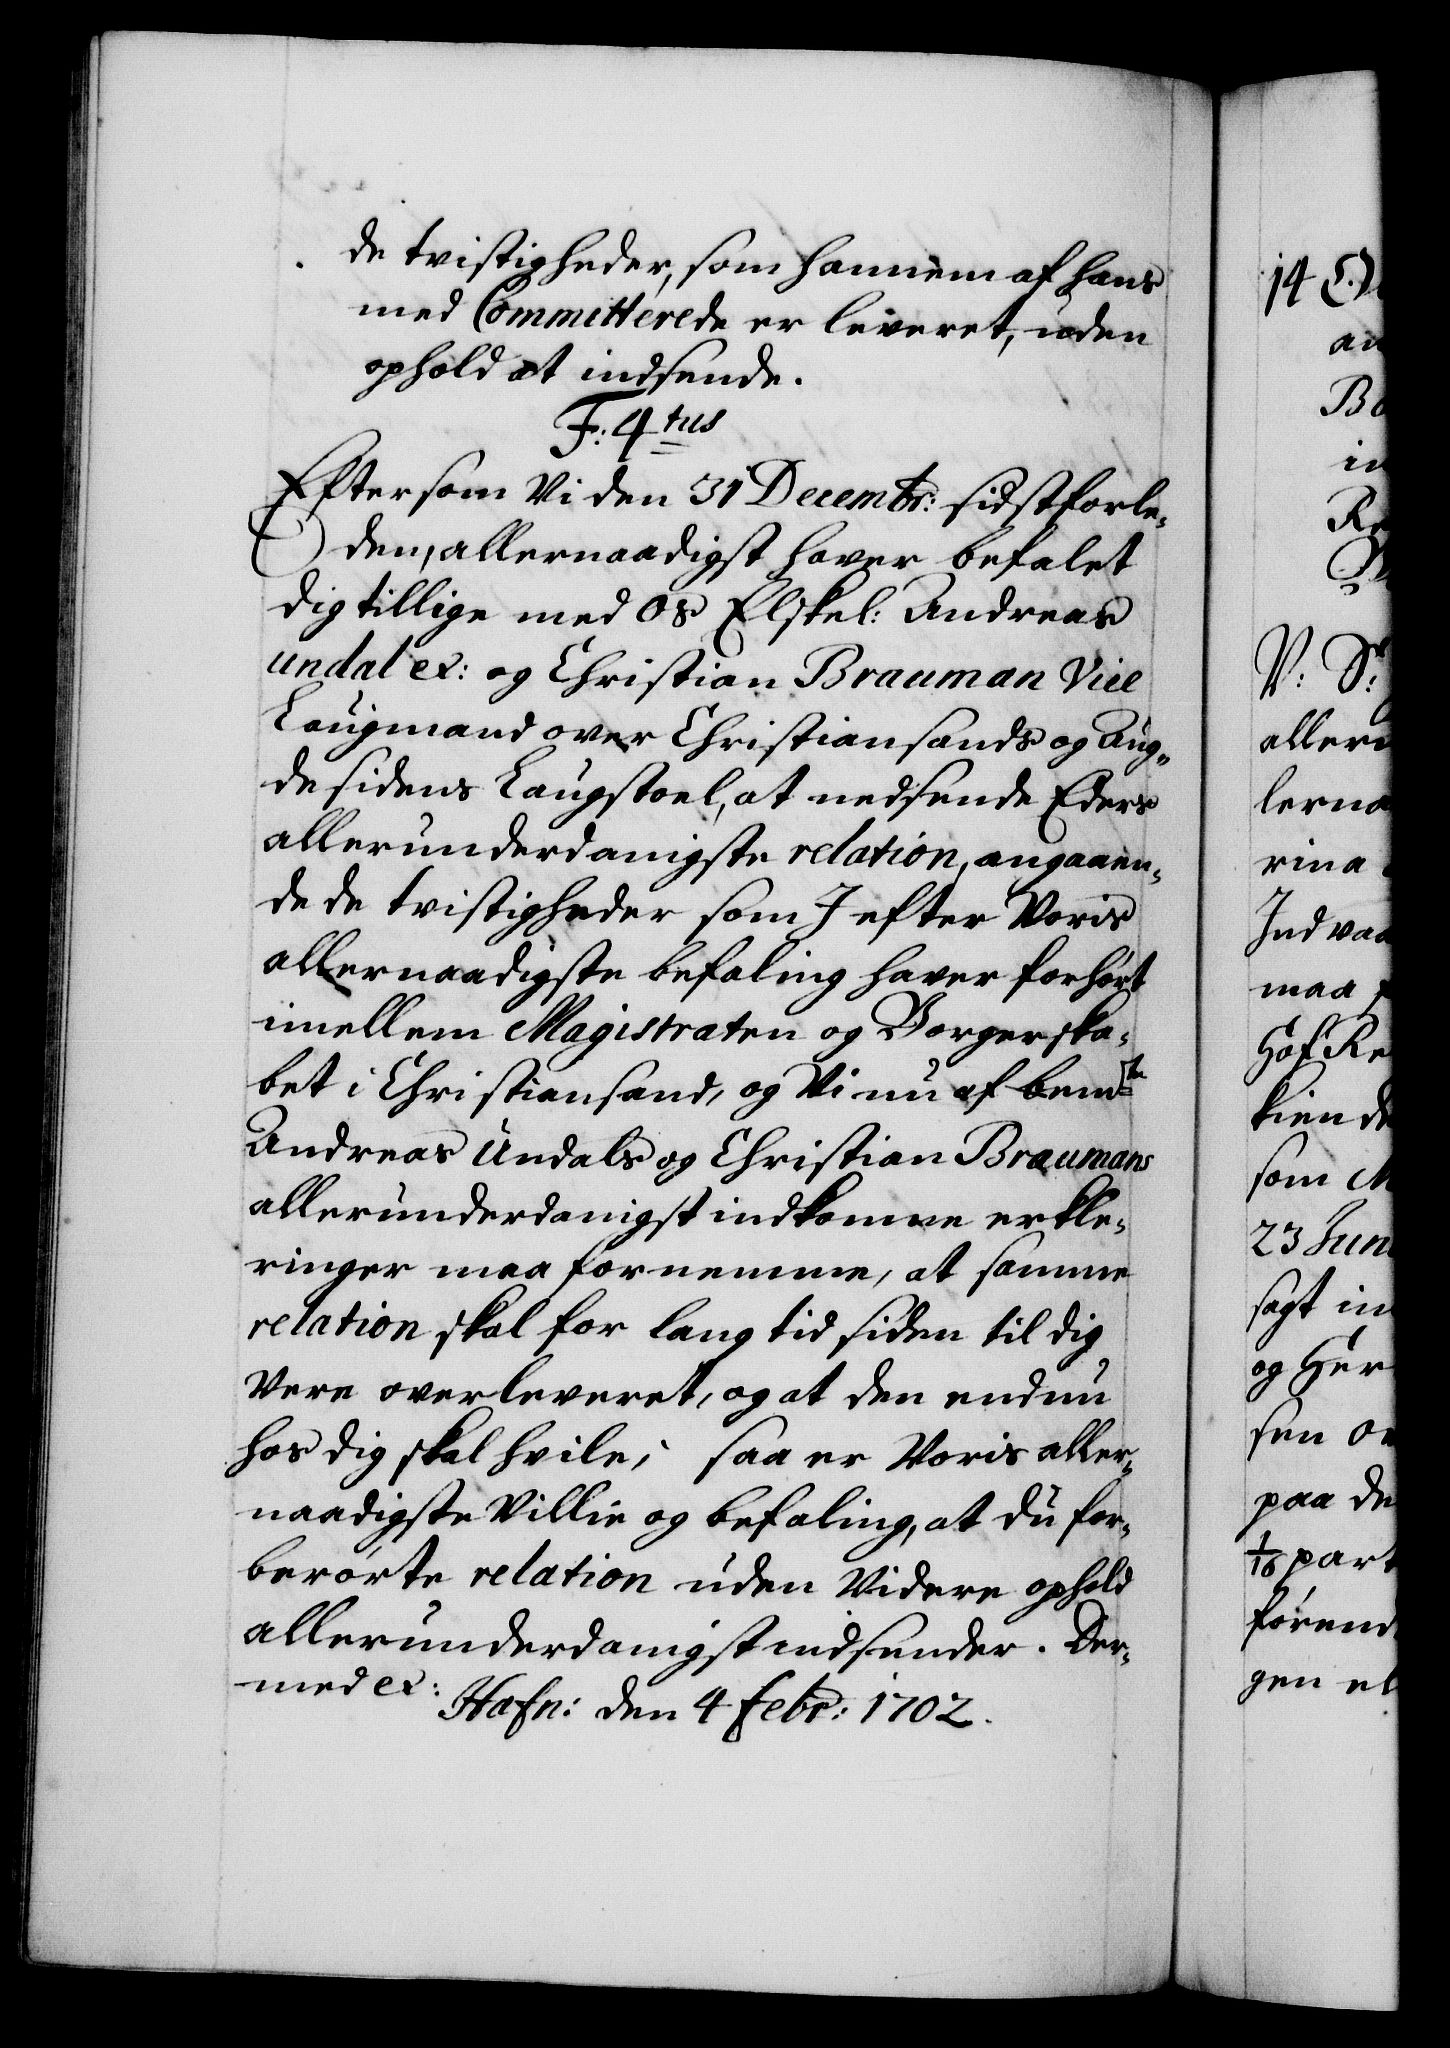 de tvistigheder, som hannem af hans
med Committerede er leveret, uden
ophold at indsende.
F: 4tus
Eftersom Vi den 31 Decembr: sidstforle-
den, allernaadigst haver befalet
dig tillige med Os Elskel: Andreas
undal etc: og Christian Brauman Vice
Laugmand over Christiansands og Aug-
desidens Laugstoel, at nedsende Eders
allerunderdanigste relation, angaaen-
de de tvistigheder som I efter Voris
allernaadigste befaling haver forhørt
imellem Magistraten og Borgerska-
bet i Christiansand, og Vi nu af bemte
Andreas Undals og Christian Braumans
allerunderdanigst indkomne erkle-
ringer maa fornemme, at samme
relation skal for lang tid siden til dig
Vere overleveret, og at den endnu
hos dig skal hvile; saa er Voris aller-
naadigste Villie og befaling, at du for-
berørte relation uden Videre ophold
allerunderdanigst indsender. Der-
med etc:
Hafn: den 4 Febr: 1702.
14
an
Bo
in
Re
V: S:
allern
lerna
rina
Indvaa
maa
Hof Re
kiende
som M
23 Juni
sagt in
og Her
sen
paa de
1/16 part
førend
gen el